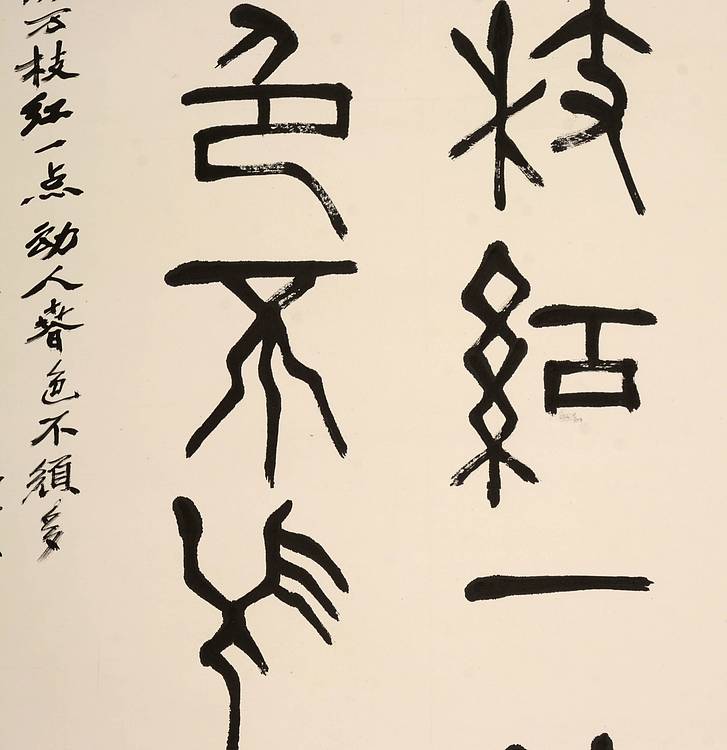 枝紅一
色不須
万枝红一点动人春色不須多